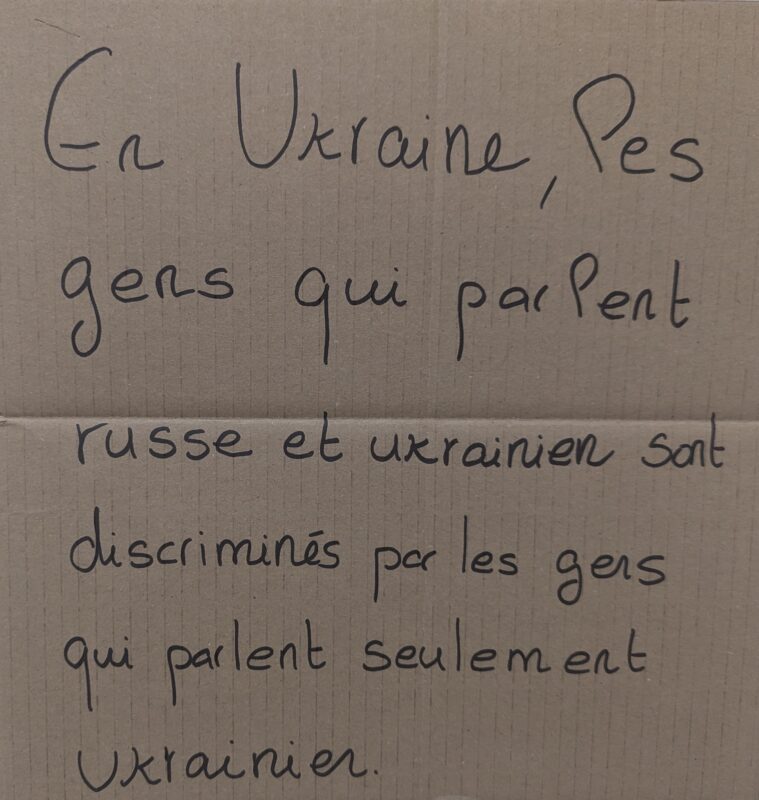 En Ukraine, les
gens qui parlent
russe et ukrainien sont
discriminés par les gens
qui parlent seulement
ukrainien.